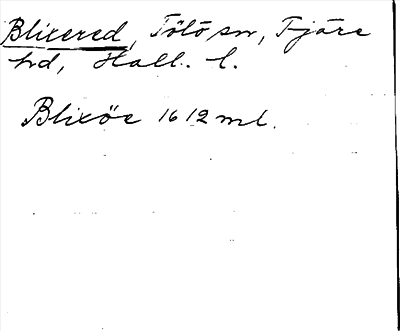 Blixered, Tölö sn, Fjäre
hd, Hall. l.
Blixöe 1612 ml.